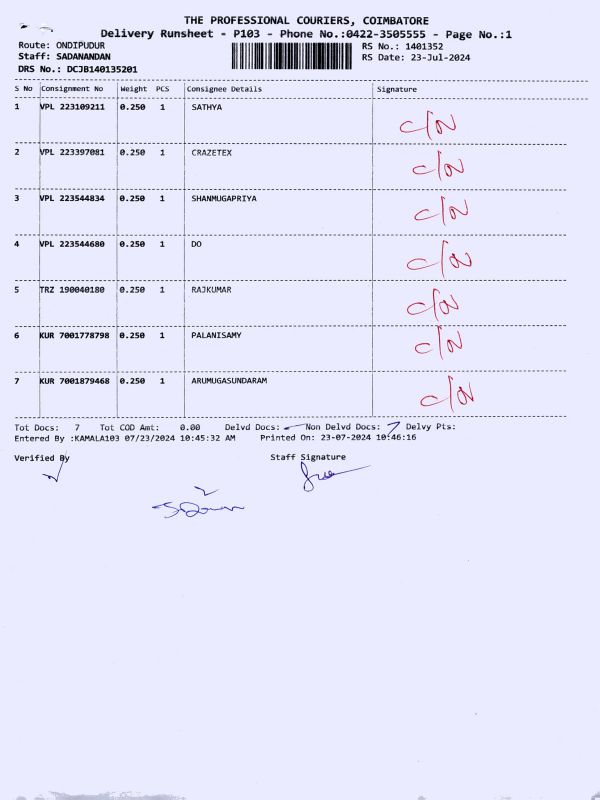 THE PROFESSIONAL COURIERS, COIMBATORE
Delivery Runsheet - P103 - Phone No.:0422-3505555 - Page No.:1
Route: ONDIPUDUR RS No.: 1401352
Staff: SADANANDAN RS Date: 23-Jul-2024
DRS No.: DCJB140135201
S No Consignment No Weight PCS Consignee Details Signature
1 VPL 223109211 0.250 1 SATHYA C/N
2 VPL 223397081 0.250 1 CRAZETEX C/N
3 VPL 223544834 0.250 1 SHANMUGAPRIYA C/N
4 VPL 223544680 0.250 1 DO C/N
5 TRZ 190040180 0.250 1 RAJKUMAR C/N
6 KUR 7001778798 0.250 1 PALANISAMY C/N
7 KUR 7001879468 0.250 1 ARUMUGASUNDARAM C/N
Tot Docs: 7 Tot COD Amt: 0.00 Delvd Docs: Non Delvd Docs: 7 Delvy Pts:
Entered By :KAMALA103 07/23/2024 10:45:32 AM Printed On: 23-07-2024 10:46:16
Verified By Staff Signature